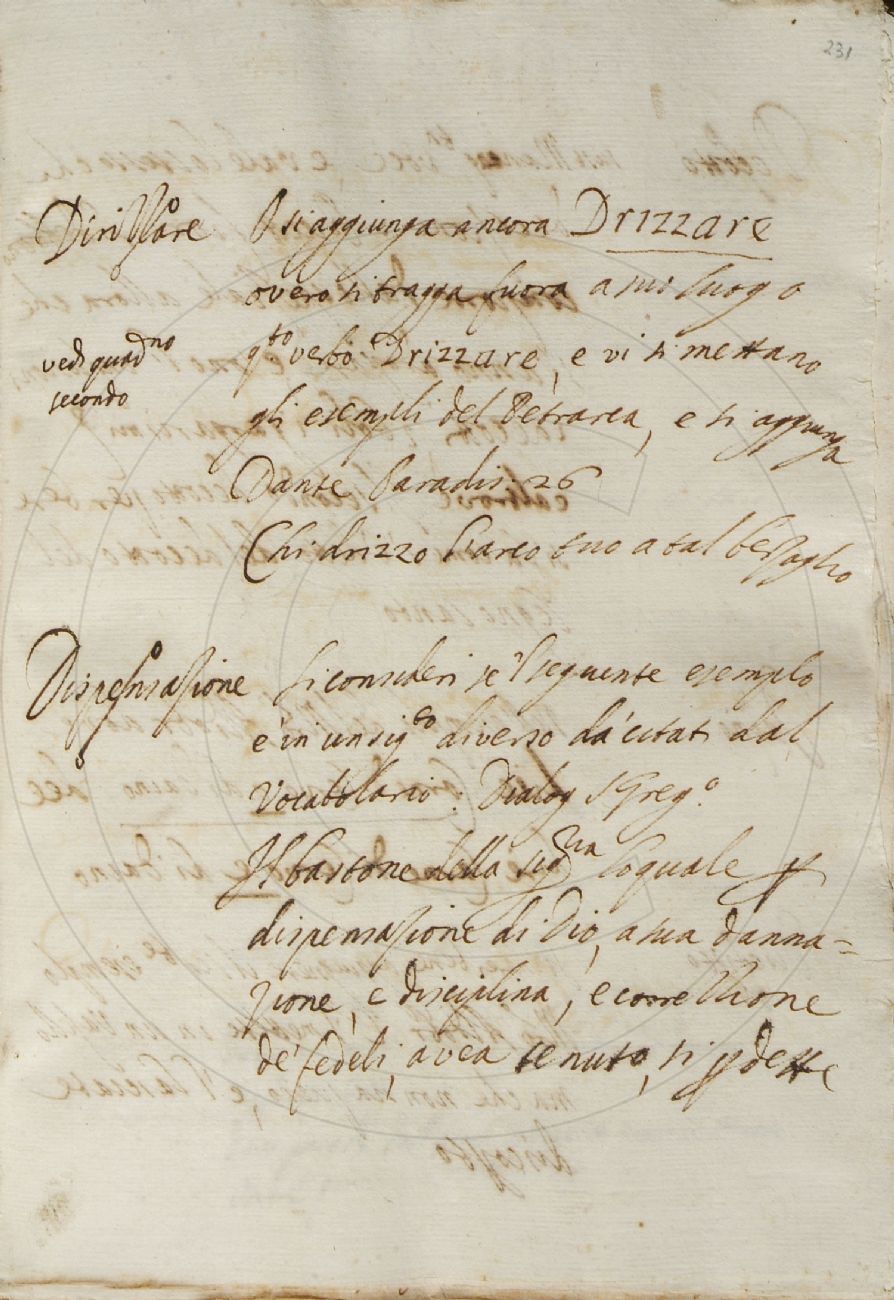 231
Dirizzare O si aggiunga ancora Drizzare
overo si tragga fuora a suo luogo
q.to verbo Drizzare, e vi si mettano
vedi quad.no
secondo
gli esempli del Petrarca, e si aggiunga
Dante Paradis. 26
Chi drizzò l'arco tuo a tal bersaglio
Dispensazione si consideri se 'l seguente esemplo
è in un sig.to diverso da' citati dal
Vocabolario. Dialog S Greg.o
Il bastone della loquale p
dispensazione di Dio, a sua danna=
zione, e disciplina, e correzzione
de' fedeli, avea tenuto, si pdette